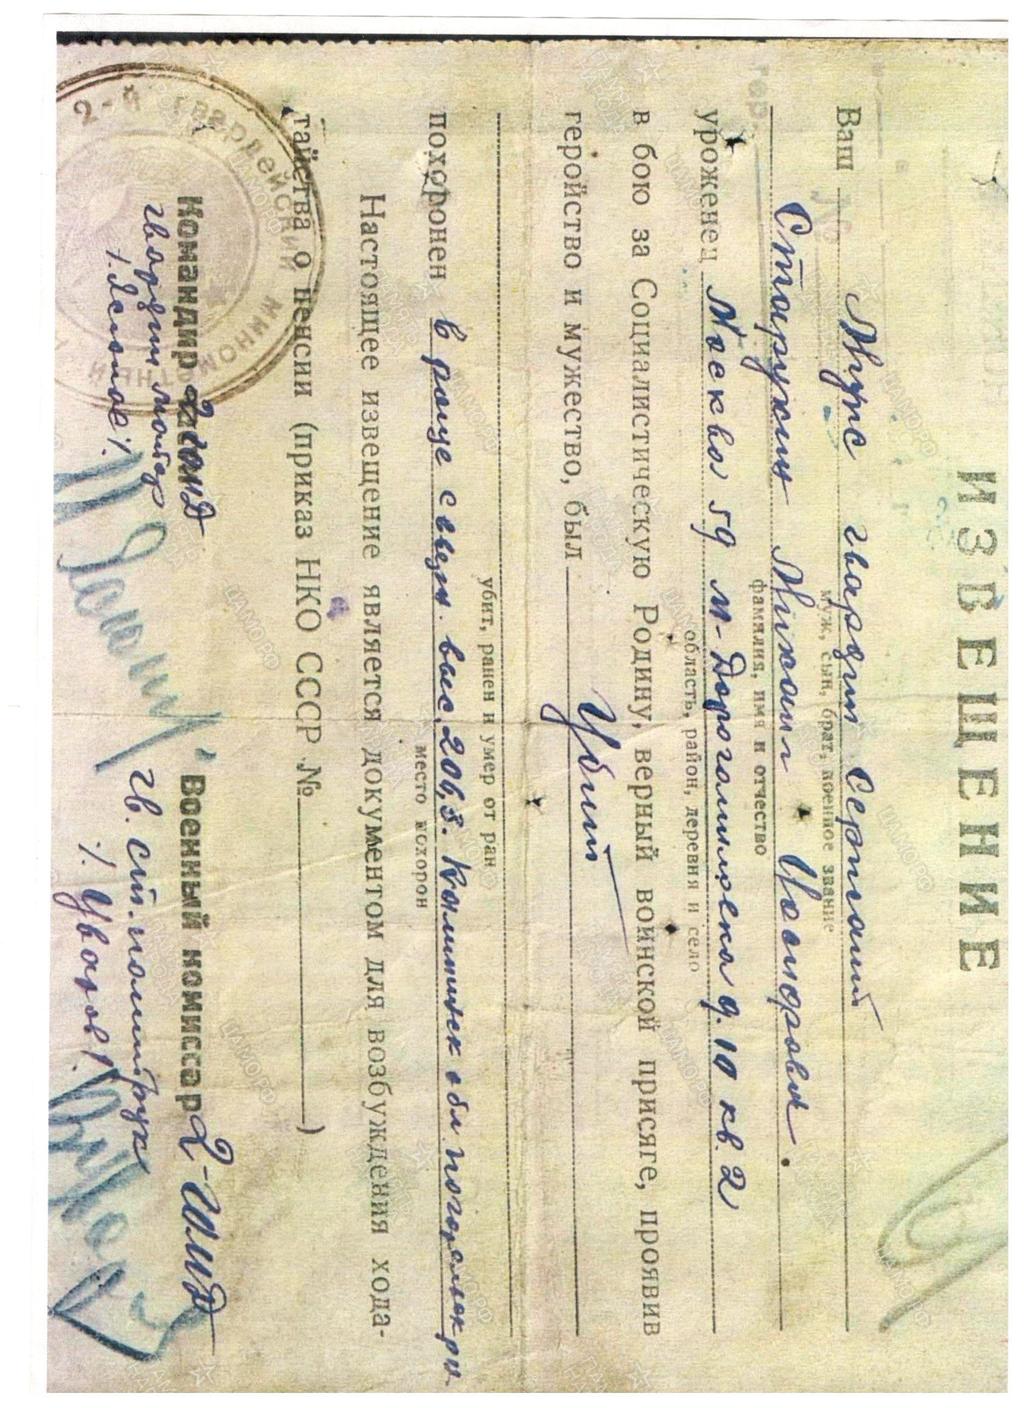 ИЗВЕЩЕНИЕ
Ваш Муж гвардии Сержант
муж, сын, брат, военное звание
Старухин Михаил
фамилия, имя и отчество
уроженец Москва 59 М-Дорогомилска д. 10 кв. 2
область, район, деревня и село
в бою за Социалистическую Родину, верный воинской присяге, проявив
геройство и мужество, был Убит
убит, ранен и умер от ран
похоронен в роще выс. 206,3. обл.
место похорон
Настоящее извещение является документом для возбуждения хода-
тайства о пенсии (приказ НКО СССР № )
Командир части Военный комиссар
гвардии майор гв. ст. политрук
2-й гвардейский минометный
ЦАМО РФ